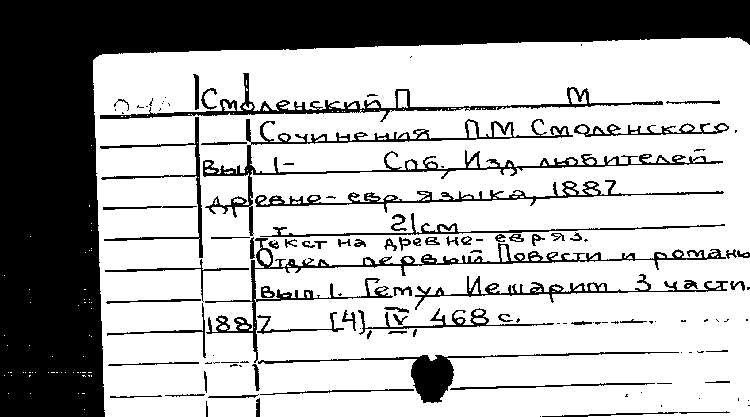 Смоленский, П М
Сочинения П.М. Смоленского.
Вып. 1- Спб., Изд. любителей
древне-евр. языка, 1887
т. 21см
Текст на древне-евр яз.
Отдел первый Повести и романы
вып. 1. Гемул Иешарит. 3 части.
1887 [4], IV, 468 с.